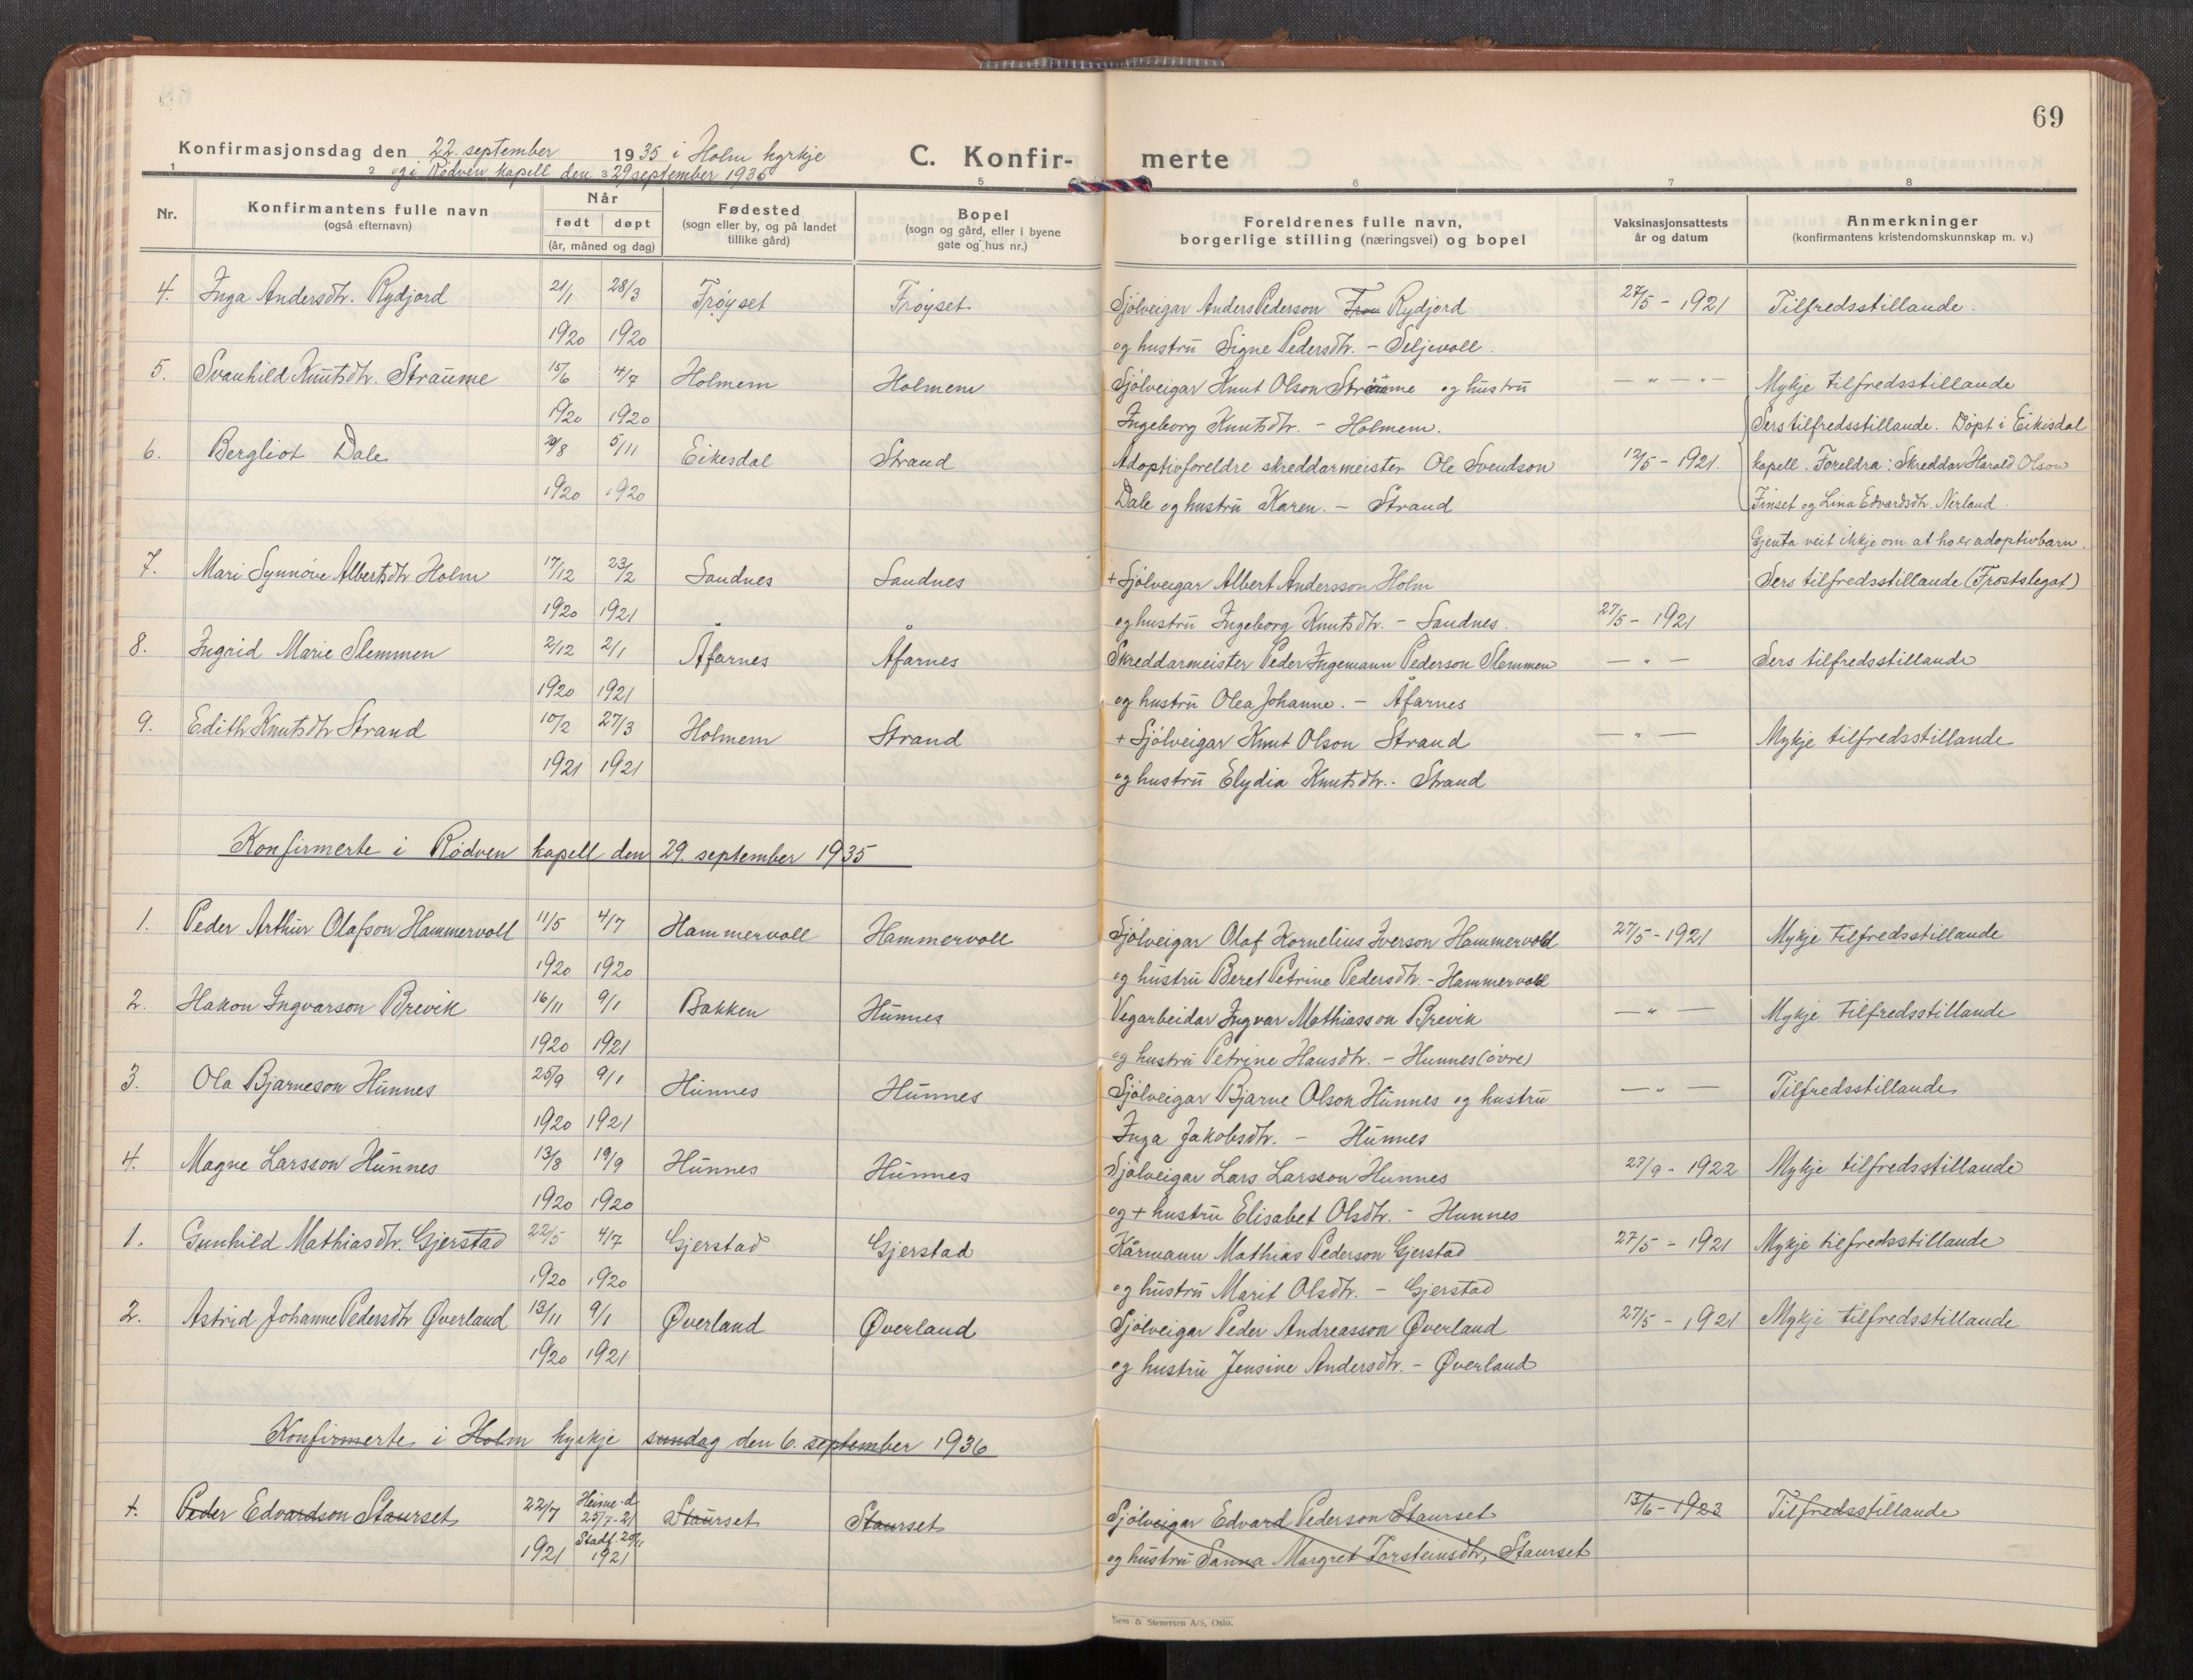 69
Konfirmasjonsdag den 22. september 1935 i Holm kyrkje
og i Rødven kapell den 29 september 1935
C. Konfir- merte
1 2 3 5 6 7 8
Nr.
Konfirmantens fulle navn
(også efternavn)
Når
født døpt
(år, måned og dag)
Fødested
(sogn eller by, og på landet
tillike gård)
Bopel
(sogn og gård, eller i byene
gate og hus nr.)
Foreldrenes fulle navn,
borgerlige stilling (næringsvei) og bopel
Vaksinasjonsattests
år og datum
Anmerkninger
(konfirmantens kristendomskunnskap m. v.)
4. Inga Andersdtr. Rydjord 21/1 28/3 Frøyset Frøyset Sjølveigar Anders Pederson Rydjord 27/5 - 1921 Tilfredsstillande.
1920 1920 og hustru Signe Pedersdtr. - Seljevoll.
5. Svanhild Knutsdtr. Straume 15/6 4/7 Holmem Holmem Sjølveigar Knut Olson Straume og hustru — " — " — Mykje tilfredsstillande
1920 1920 Ingeborg Knutsdtr. - Holmem. Sers tilfredsstillande. Døpt i Eikisdal
6. Bergliot Dale 29/8 5/11 Eikesdal Strand Adoptivforeldre skreddarmeister Ole Svendson 12/5 - 1921. kapell. Foreldra: Skreddar Harald Olson
1920 1920 Dale og hustru Karen. - Strand Finset og Lina Edvardsdtr. Nerland.
Gjenta veit ikkje om at ho er adoptivbarn.
7. Mari Synnøve Albertsdtr Holm 17/12 23/2 Sandnes Sandnes + Sjølveigar Albert Andersson Holm Sers tilfredsstillande (Frostslegat)
1920 1921 og hustru Ingeborg Knutsdtr. - Sandnes. 27/5 - 1921
8. Ingrid Marie Slemmen 2/12 2/1 Åfarnes Åfarnes Skreddarmeister Peder Ingemann Pederson Slemmen — " — Sers tilfredsstillande
1920 1921 og hustru Olea Johanne. - Åfarnes
9. Edith Knutsdtr Strand 10/2 27/3 Holmem Strand + Sjølveigar Knut Olson Strand — " — Mykje tilfredsstillande
1921 1921 og hustru Elydia Knutsdtr. - Strand
Konfirmerte i Rødven kapell den 29. september 1935
1. Peder Arthur Olafson Hammervoll 11/5 4/7 Hammervoll Hammervoll Sjølveigar Olaf Kornelius Iverson Hammervold 27/5 - 1921 Mykje tilfredsstillande
1920 1920 og hustru Beret Petrine Pedersdtr. - Hammervoll
2. Hakon Ingvarson Brevik 16/11 9/1 Bakken Hunnes Vegarbeidar Ingvar Mathiasson Brevik — " — Mykje tilfredsstillande
1920 1921 og hustru Petrine Hansdtr. - Hunnes (øvre)
3. Ola Bjarneson Hunnes 25/9 9/1 Hunnes Hunnes Sjølveigar Bjarne Olson Hunnes og hustru — " — Tilfredsstillande
1920 1921 Inga Jakobsdtr. - Hunnes
4. Magne Larsson Hunnes 13/8 19/9 Hunnes Hunnes Sjølveigar Lars Larsson Hunnes 27/9 - 1922 Mykje tilfredsstillande
1920 1920 og + hustru Elisabet Olsdtr. - Hunnes
1. Gunhild Mathiasdtr. Gjerstad 22/5 4/7 Gjerstad Gjerstad Kårmann Mathias Pederson Gjerstad 27/5 - 1921 Mykje tilfredsstillande
1920 1920 og hustru Marit Olsdtr. - Gjerstad
2. Astrid Johanne Pedersdtr Øverland 13/11 9/1 Øverland Øverland Sjølveigar Peder Andreasson Øverland 27/5 - 1921 Mykje tilfredsstillande
1920 1921 og hustru Jensine Andersdtr. - Øverland
Konfirmerte i Holm kyrkje sundag den 6. september 1936
Peder Edvardson Staurset 22/7 Heime-d. 25/7-21 Staurset Staurset Sjølveigar Edvard Pederson Staurset 13/6 - 1923 Tilfredsstillande
1921 Stadf. 1921 og hustru Sanna Margret Torsteinsdtr, Staurset
Sem & Stenersen A/S, Oslo.